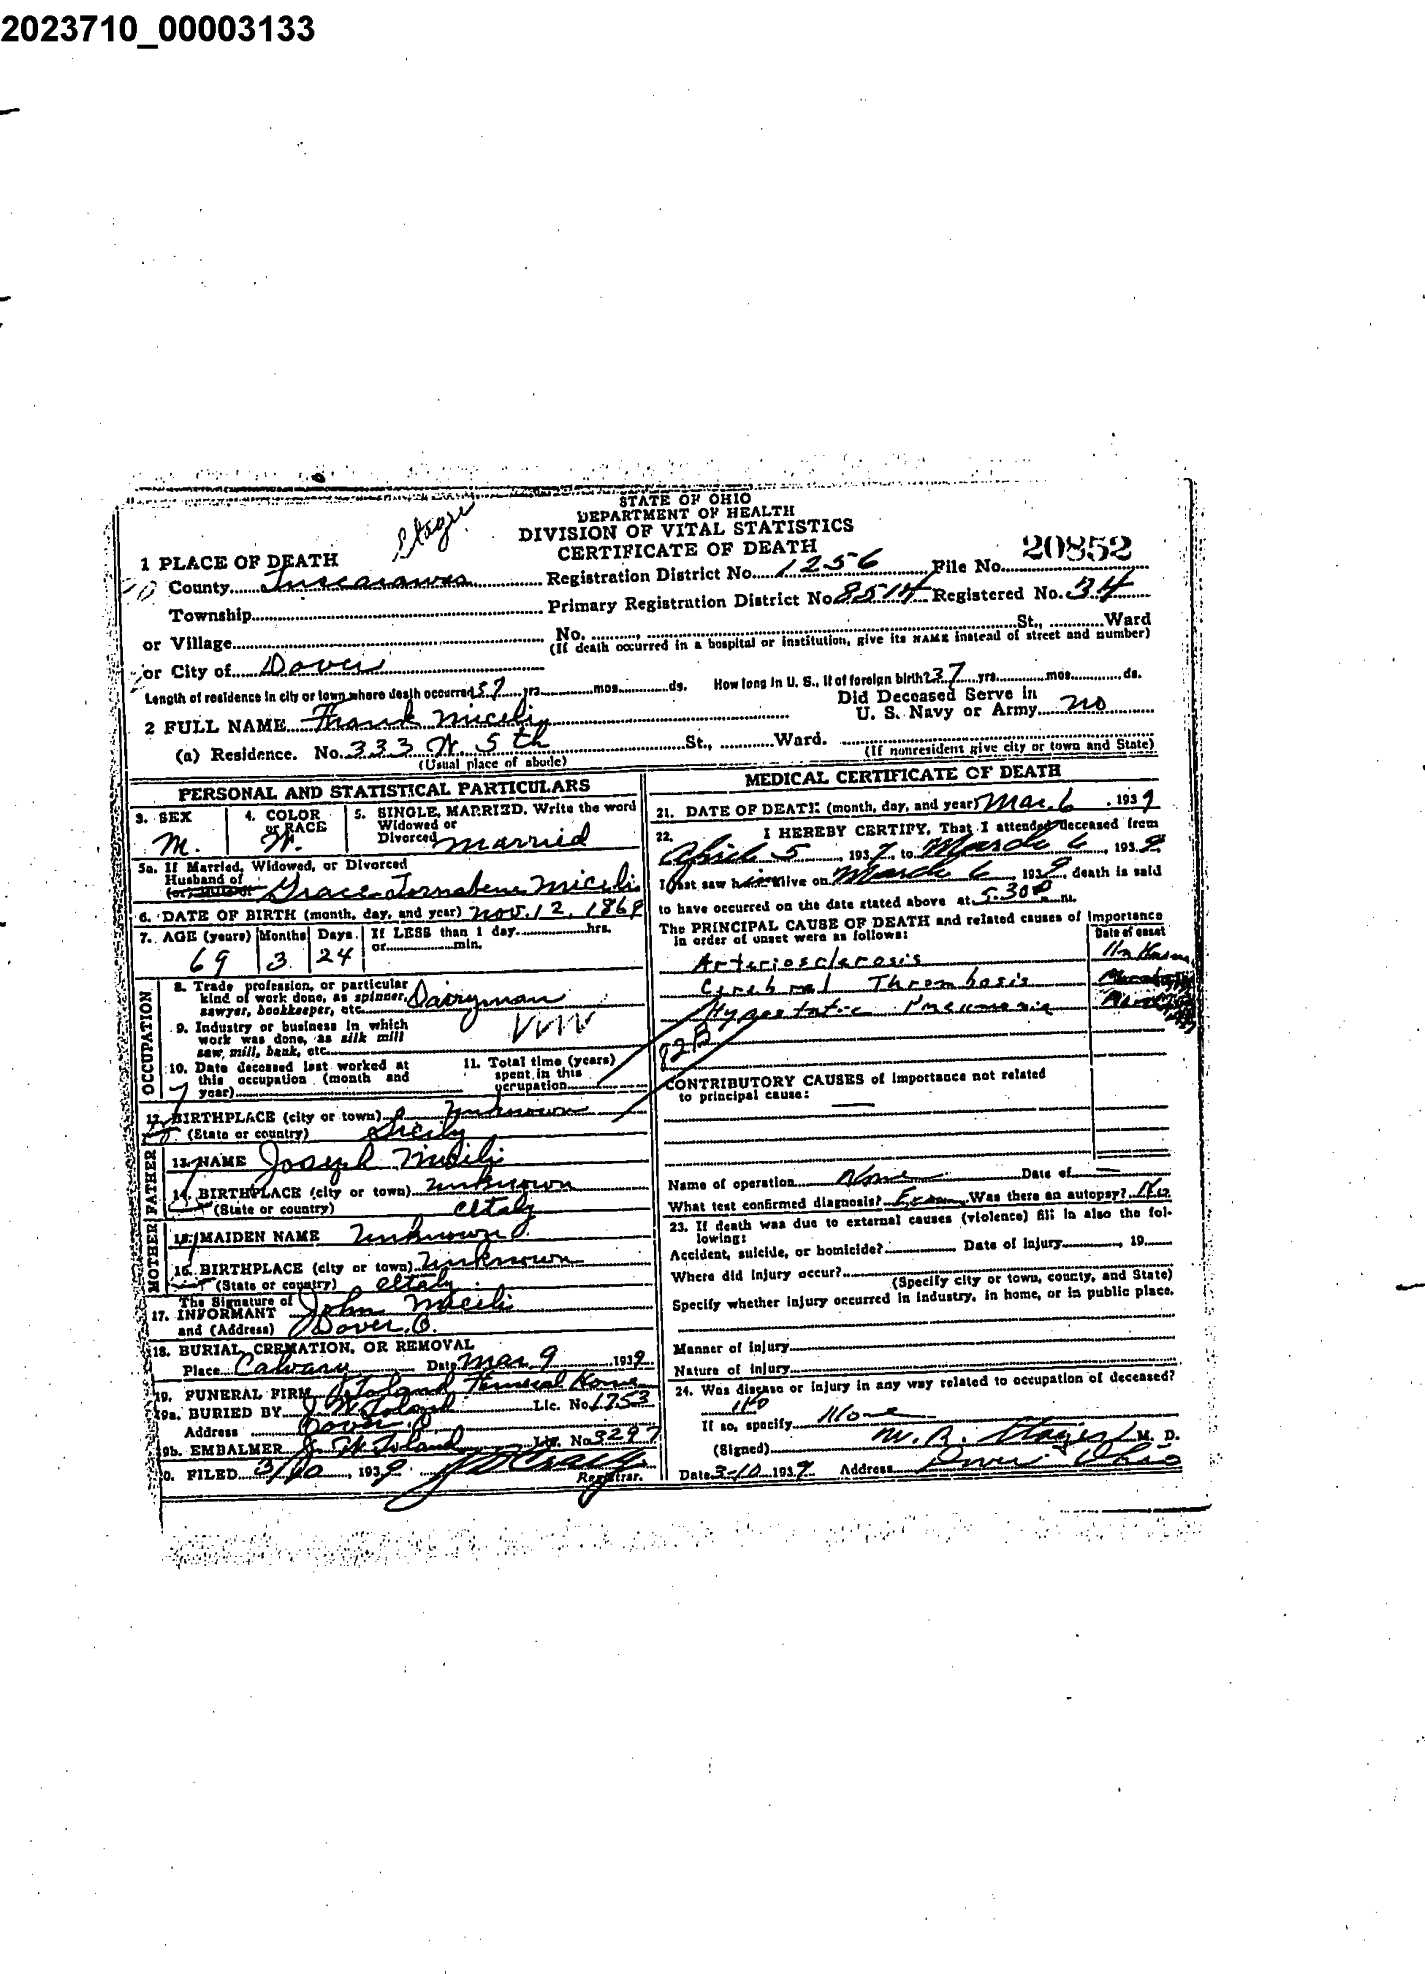 2023710_00003133
STATE OF OHIO
DEPARTMENT OF HEALTH
DIVISION OF VITAL STATISTICS
CERTIFICATE OF DEATH
20852
1 PLACE OF DEATH
County Tuscarawas Registration District No. 1256 File No.
Township Primary Registration District No. 8514 Registered No. 34
or Village No. St., Ward
(If death occurred in a hospital or institution, give its NAME instead of street and number)
or City of Dover
Length of residence in city or town where death occurred 37 yrs. mos. ds. How long in U. S., if of foreign birth? 37 yrs. mos. ds.
2 FULL NAME Frank Miceli Did Deceased Serve in U. S. Navy or Army no
(a) Residence. No. 333 W. 5th St., Ward.
(Usual place of abode) (If nonresident give city or town and State)
PERSONAL AND STATISTICAL PARTICULARS
3. SEX M.
4. COLOR or RACE W.
5. SINGLE, MARRIED, Write the word Widowed or Divorced married
5a. If Married, Widowed, or Divorced
Husband of Grace Tornabene Miceli
6. DATE OF BIRTH (month, day, and year) Nov. 12, 1869
7. AGE (years) 69 Months 3 Days 24 If LESS than 1 day hrs. or min.
OCCUPATION
8. Trade, profession, or particular kind of work done, as spinner, sawyer, bookkeeper, etc. Dairyman
9. Industry or business in which work was done, as silk mill saw, mill, bank, etc.
10. Date deceased last worked at this occupation (month and year)
11. Total time (years) spent in this occupation
12. BIRTHPLACE (city or town) Unknown
(State or country) Sicily
FATHER
13. NAME Joseph Miceli
14. BIRTHPLACE (city or town) Unknown
(State or country) Italy
MOTHER
15. MAIDEN NAME Unknown
16. BIRTHPLACE (city or town) Unknown
(State or country) Italy
17. The Signature of INFORMANT John Miceli
and (Address) Dover, O.
18. BURIAL, CREMATION, OR REMOVAL
Place Calvary Date Mar 9 1939
19. FUNERAL FIRM Toland Funeral Home
19a. BURIED BY J. W. Toland Lic. No. 1753
Address Dover, O.
19b. EMBALMER J. W. Toland Lic. No. 3297
20. FILED 3/10, 1939
Registrar.
MEDICAL CERTIFICATE OF DEATH
21. DATE OF DEATH (month, day, and year) Mar. 6, 1939
22. I HEREBY CERTIFY, That I attended deceased from
April 5, 1937, to March 6, 1939
I last saw him alive on March 6, 1939, death is said
to have occurred on the date stated above at 5:30 P. m.
The PRINCIPAL CAUSE OF DEATH and related causes of importance
in order of onset were as follows: Date of onset
Arteriosclerosis
Cerebral Thrombosis
Hypostatic Pneumonia
82B
CONTRIBUTORY CAUSES of importance not related
to principal cause:
Name of operation None Date of
What test confirmed diagnosis? Exam Was there an autopsy? No
23. If death was due to external causes (violence) fill in also the following:
Accident, suicide, or homicide? Date of injury 19
Where did injury occur?
(Specify city or town, county, and State)
Specify whether injury occurred in industry, in home, or in public place.
Manner of injury
Nature of injury
24. Was disease or injury in any way related to occupation of deceased?
no
If so, specify None
(Signed) M. D.
Date 3-10 1939 Address Dover Ohio